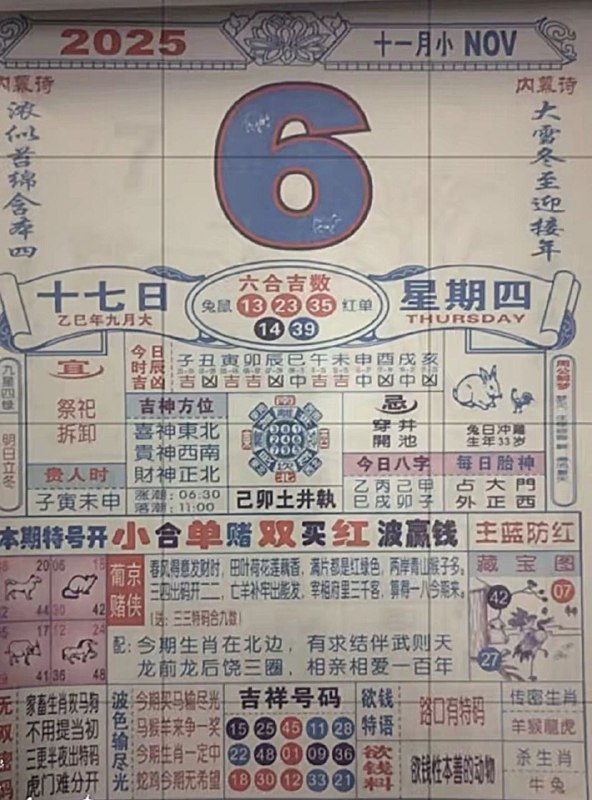 2025
十一月小 NOV
内幕诗
浓似苔绵含本四
6
内幕诗
大雪冬至迎接年
十七日
乙巳年九月大
六合吉数
兔鼠 13 23 35 红单
14 39
星期四
THURSDAY
宜
祭祀
拆卸
贵人时
子寅未申
今日时辰吉凶
子丑寅卯辰巳午未申酉戌亥
吉神方位
喜神東北
貴神西南
財神正北
涨潮：06:30
落潮：11:00
己卯土井執
忌
穿井
開池
兔日冲雞
生年33岁
今日八字
乙丙己甲
巳戌卯子
每日胎神
占大門
外正西
明日立冬
周公解梦
本期特号开小合单赌双买红波赢钱
主蓝防红
20
06 18
30 42
17
12 24
41
36 48
葡京赌侠
春风得意发财时，田叶荷花莲藕香，满片都是红绿色，两岸青山猴子多。
三四出码开二二，亡羊补牢出能发，宰相府里三千客，算得一八今期来。
(送：三三特码合九数)
配：今期生肖在北边，有求结伴武则天
龙前龙后饶三圈，相亲相爱一百年
藏宝图
42
07
27
家畜生肖孜马狗
不用提当初
三更半夜出特码
虎门难分开
波色输尽光
今期买马输尽光
马猴羊来争一奖
今期生肖一定中
蛇鸡今期无希望
吉祥号码
15 25 45 11 28
22 48 01 09 36
18 30 12 33 21
欲钱特语
路口有特码
欲钱料
欲钱性本善的动物
传密生肖
羊猴龍虎
杀生肖
牛兔